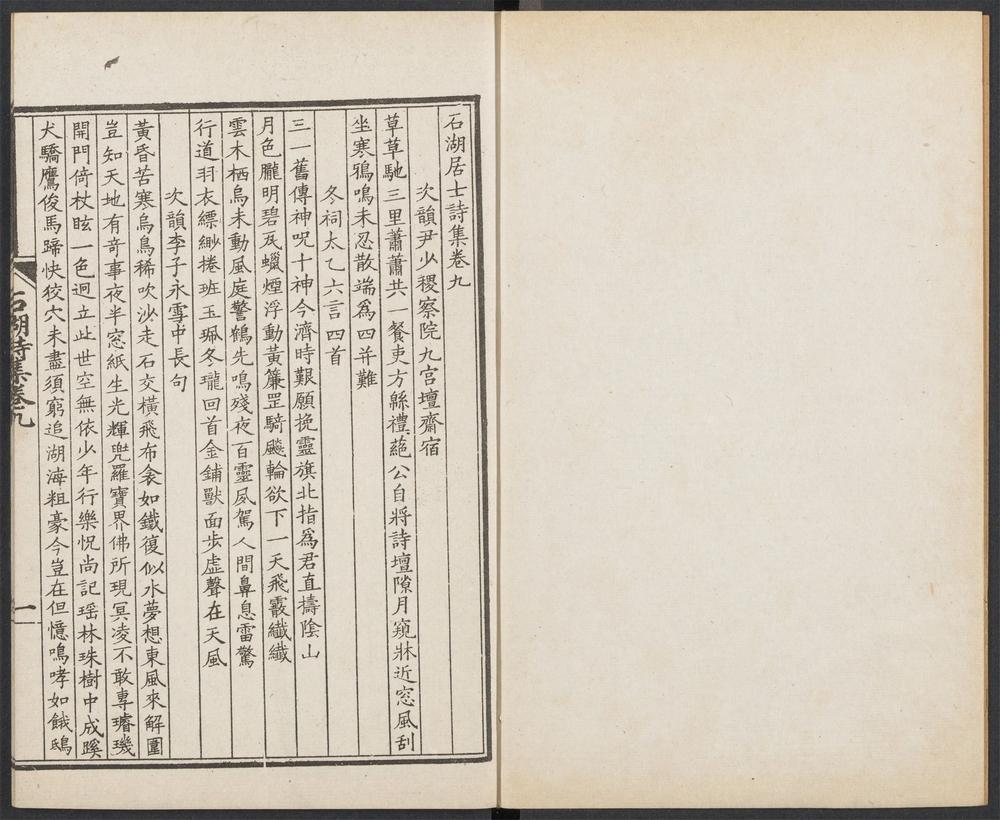 石湖居士詩集卷九
次韻尹少稷察院九宫壇齋宿
草草馳三里蕭蕭共一餐吏方緜禮蕝公自將詩壇隙月窺牀近窓風刮
坐寒鴉鳴未忍散端爲四并難
冬祠太乙六言四首
三一舊傳神呪十神今濟時艱願挽靈旗北指爲君直擣陰山
月色朧明碧瓦蠟煙浮動黄簾罡騎飈輪欲下一天飛霰纖纖
雲木栖烏未動風庭警鶴先鳴殘夜百靈夙駕人間鼻息雷驚
行道羽衣縹緲捲班玉珮冬瓏回首金鋪獸面步虚聲在天風
次韻李子永雪中長句
黄昏苦寒烏鳥稀吹沙走石交横飛布衾如鐵復似水夢想東風來解圍
豈知天地有奇事夜半窓紙生光輝兠羅寶界佛所現冥凌不敢專璿璣
開門倚杖眩一色迥立此世空無依少年行樂怳尚記瑶林珠樹中成蹊
犬驕鷹俊馬蹄快狡穴未盡須窮追湖海粗豪今豈在但憶鳴哮如餓鴟
石湖詩集卷九
一